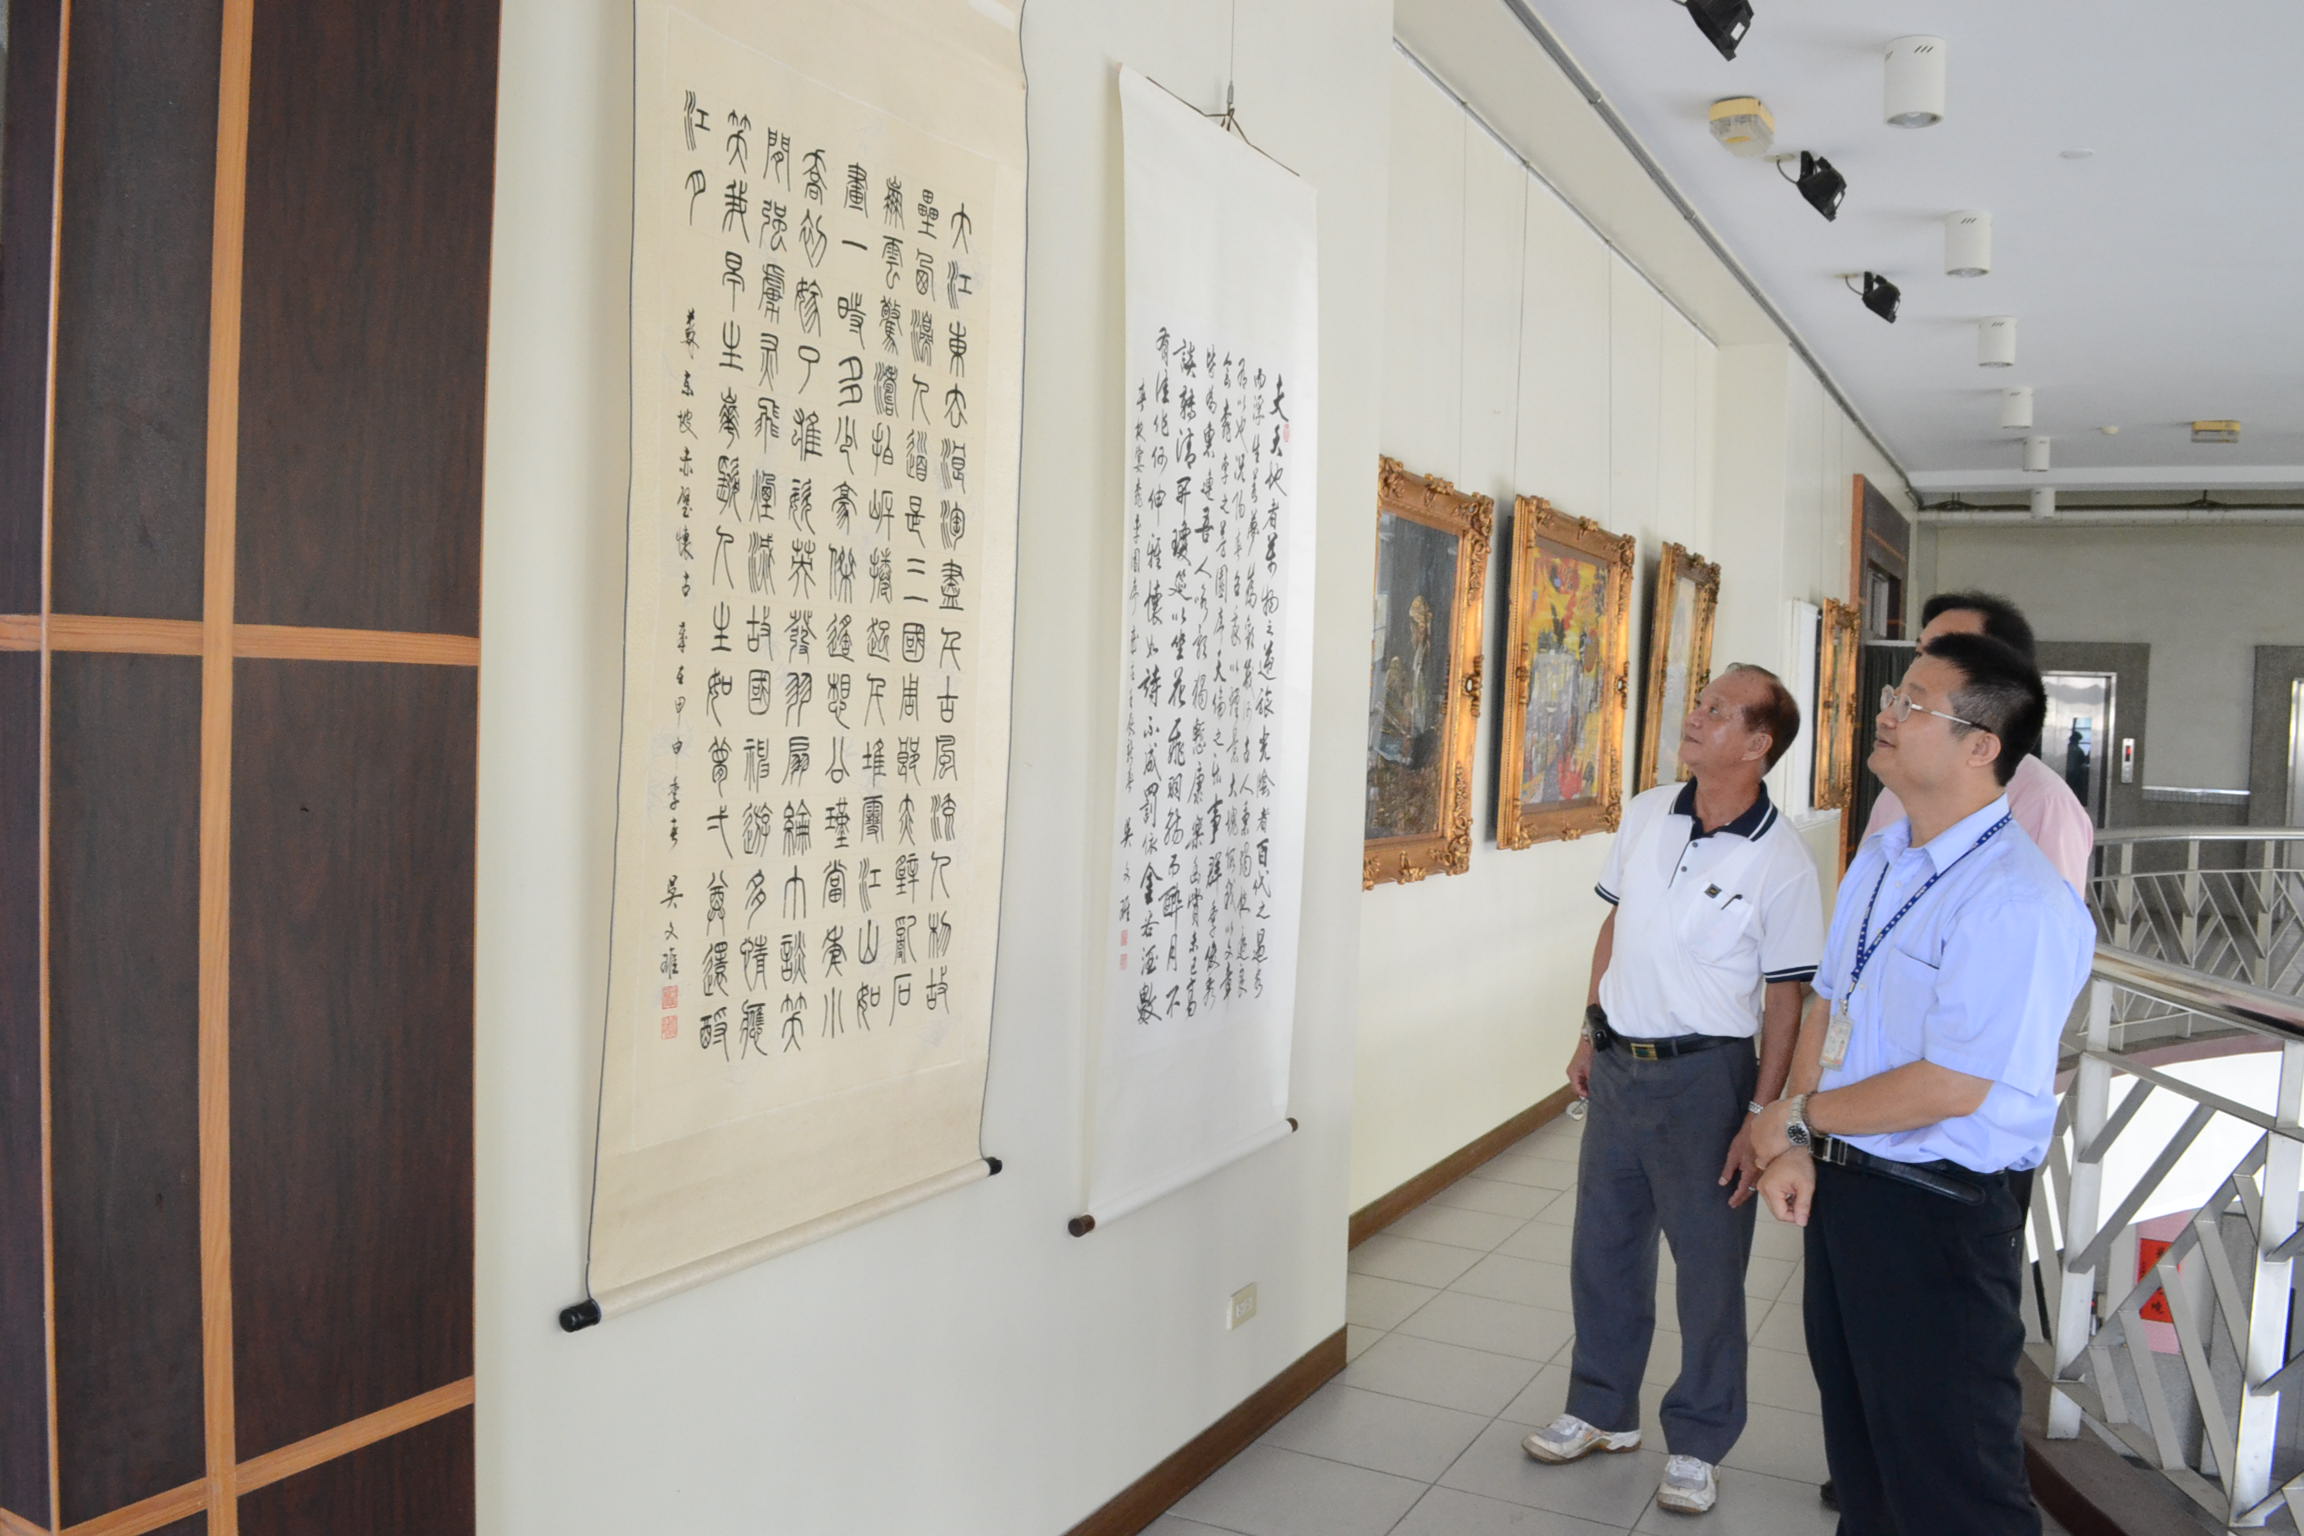 大江東去浪淘盡千古風流人物故
壘西邊人道是三國周郎赤壁亂石
雲驚濤拍岸捲起千堆雪江山如
畫一時多少豪傑遙想公瑾當年小
喬初嫁了雄姿英發羽扇綸巾談笑
間強虜灰飛煙滅故國神遊多情應
笑我早生華髮人生如夢弌尊還酹
江月
蘇東坡赤壁懷古 歲在甲申季春 吳文雄
夫天地者萬物之逆旅光陰者百代之過客
而浮生若夢為歡幾何古人秉燭夜遊良
有以也況陽春召我以煙景大塊假我以文章
會桃李之芳園序天倫之樂事群季俊秀
皆為惠連吾人詠歌獨慚康樂幽賞未已高
談轉清開瓊筵以坐花飛羽觴而醉月不
有佳作何伸雅懷如詩不成罰依金谷酒數
春夜宴桃李園序 歲在 新春 吳文雄